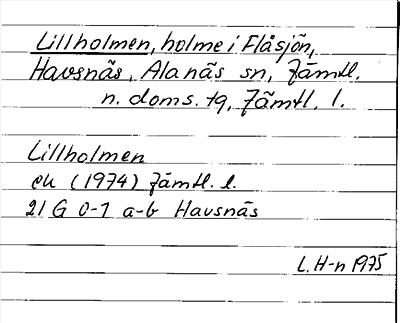 Lillholmen, holme i Flåsjön,
Havsnäs, Alanäs sn, Jämtl.
n. doms. tg, Jämtl. l.
Lillholmen
ek (1974) Jämtl. l.
21 G 0-1 a-b Havsnäs
L. H-n 1975